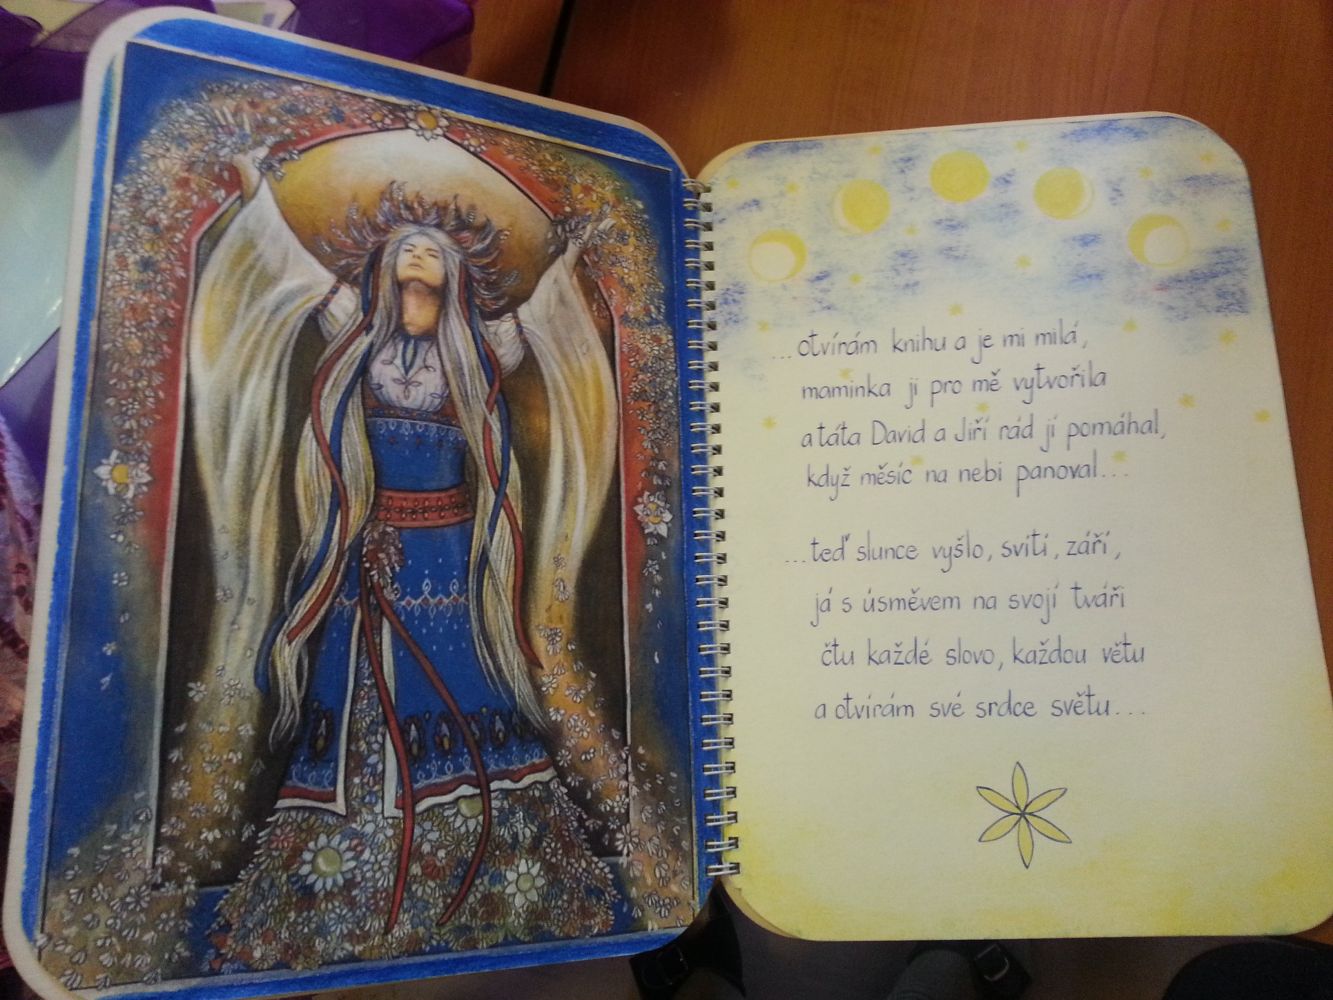 ...otvírám knihu a je mi milá,
maminka ji pro mě vytvořila
a táta David a Jiří rád jí pomáhal,
když měsíc na nebi panoval...
...teď slunce vyšlo, svítí, září,
já s úsměvem na svojí tváři
čtu každé slovo, každou větu
a otvírám své srdce světu...